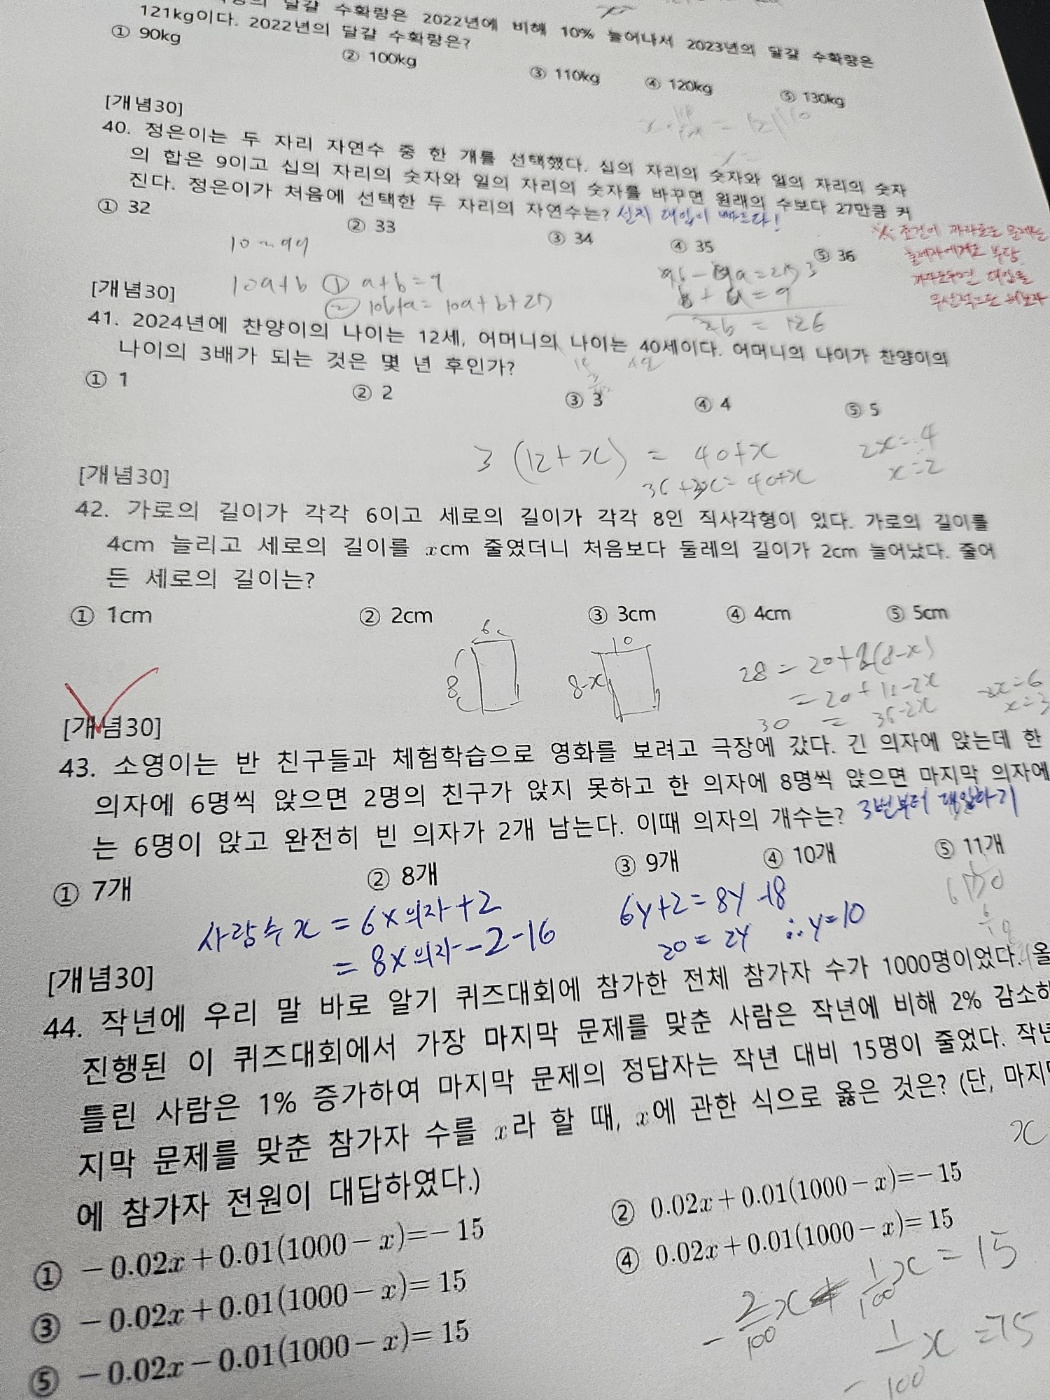 달걀 수확량은 2022년에 비해 10% 늘어나서 2023년의 달걀 수확량은
121kg이다. 2022년의 달걀 수확량은?
① 90kg ② 100kg ③ 110kg ④ 120kg ⑤ 130kg
[개념30]
40. 정은이는 두 자리 자연수 중 한 개를 선택했다. 십의 자리의 숫자와 일의 자리의 숫자
의 합은 9이고 십의 자리의 숫자와 일의 자리의 숫자를 바꾸면 원래의 수보다 27만큼 커
진다. 정은이가 처음에 선택한 두 자리의 자연수는? 선지 대입이 빠르다!
① 32 ② 33 ③ 34 ④ 35 ⑤ 36
10~99
10a+b ① a+b=9
② 10b+a = 10a+b+27
[개념30]
41. 2024년에 찬양이의 나이는 12세, 어머니의 나이는 40세이다. 어머니의 나이가 찬양이의
나이의 3배가 되는 것은 몇 년 후인가?
① 1 ② 2 ③ 3 ④ 4 ⑤ 5
3 (12+x) = 40+x
2x=4
x=2
[개념30]
42. 가로의 길이가 각각 6이고 세로의 길이가 각각 8인 직사각형이 있다. 가로의 길이를
4cm 늘리고 세로의 길이를 xcm 줄였더니 처음보다 둘레의 길이가 2cm 늘어났다. 줄어
든 세로의 길이는?
① 1cm ② 2cm ③ 3cm ④ 4cm ⑤ 5cm
6
8
10
8-x
28 = 20+2(8-x)
= 20+16-2x
30 = 36-2x
2x=6
x=3
[개념30]
43. 소영이는 반 친구들과 체험학습으로 영화를 보려고 극장에 갔다. 긴 의자에 앉는데 한
의자에 6명씩 앉으면 2명의 친구가 앉지 못하고 한 의자에 8명씩 앉으면 마지막 의자에
는 6명이 앉고 완전히 빈 의자가 2개 남는다. 이때 의자의 개수는? 3번부터 대입하기
① 7개 ② 8개 ③ 9개 ④ 10개 ⑤ 11개
사람수 x = 6x의자+2
= 8x의자-2-16
6y+2=8y-18
20=2y ∴y=10
[개념30]
44. 작년에 우리 말 바로 알기 퀴즈대회에 참가한 전체 참가자 수가 1000명이었다. 올
진행된 이 퀴즈대회에서 가장 마지막 문제를 맞춘 사람은 작년에 비해 2% 감소하
틀린 사람은 1% 증가하여 마지막 문제의 정답자는 작년 대비 15명이 줄었다. 작년
지막 문제를 맞춘 참가자 수를 x라 할 때, x에 관한 식으로 옳은 것은? (단, 마지막
에 참가자 전원이 대답하였다.)
x
① −0.02x+0.01(1000−x)=−15 ② 0.02x+0.01(1000−x)=−15
③ −0.02x+0.01(1000−x)=15 ④ 0.02x+0.01(1000−x)=15
⑤ −0.02x−0.01(1000−x)=15